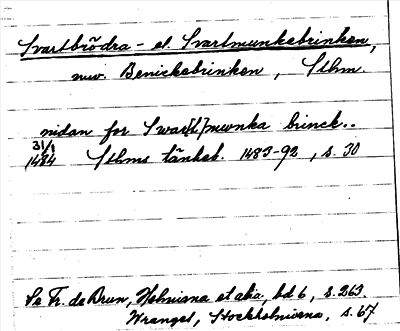 Svartbrödra- el. Svartmunkebrinken,
nuv. Benickebrinken, Sthm.
nidan for Swar[t]munka brinck..
31/1
1484 Sthms tänkeb. 1483-92, s. 30
Se Fr. de Brun, Holmiana et alia, bd 6, s. 263.
Wrangel, Stockholmiana, s. 67